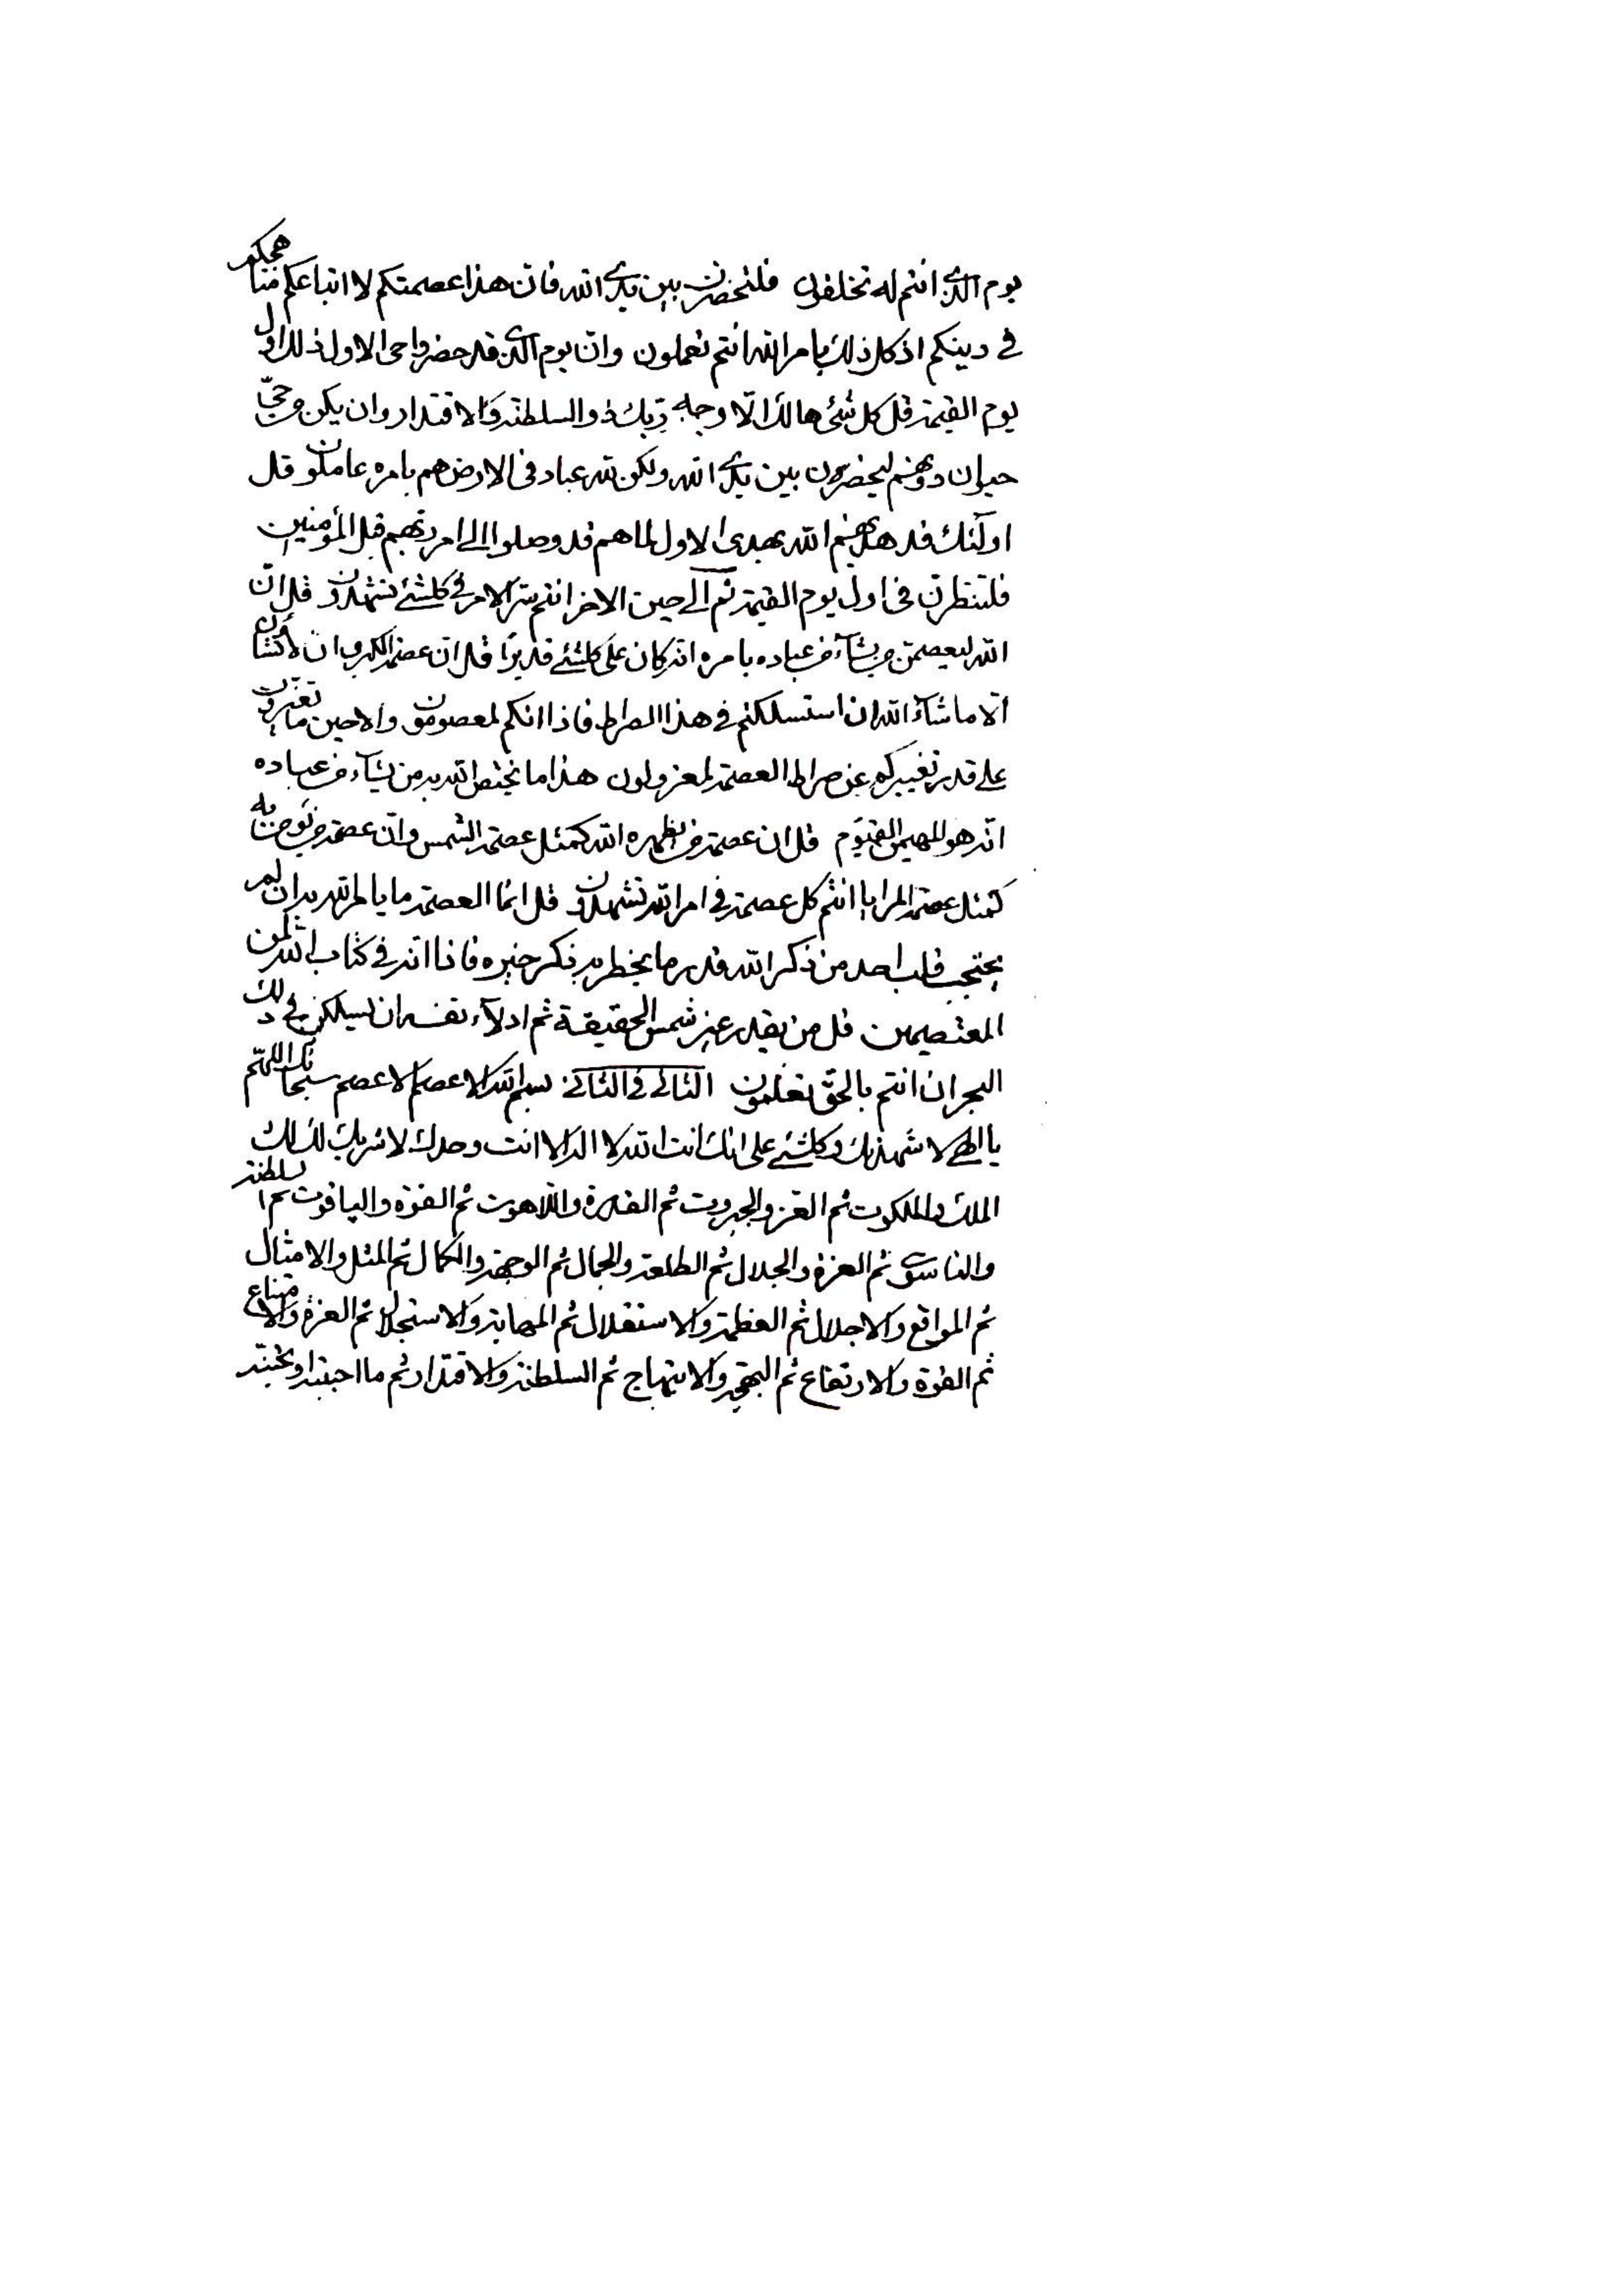 يوم الذي انتم له تخلقون فلتحضرن بين يدي الله فان هذا عصمتكم لا اتباعكم مناهجكم
في دينكم اذ كل ذلك بامر الله انتم تعملون وان يوم الذي قد حضر واحى الاول ذلك اول
يوم القيمة قل كل شئ هالك الا وجهه ربك ذو السلطنة والاقتدار وان يكن من حي
حيوان دونهم ليحضرون بين يدي الله ولكن لله عباد في الارض هم بامره عاملون قل
اولئك قد هديهم الله بهدى الاول لما هم قد وصلوا الى امر ربهم قبل المؤمنين
فلتنظرن في اول يوم القيمة ثم الى حين الاخر انتم سر الامر في كلشئ تشهدون قل ان
الله ليعصمن من يشآء من عباده بامره انه كان على كلشئ قديرا قل ان عصمة الكبرى ان لا تشاؤن
الا ما شآء الله ان استسلكتم في هذا الصراط فاذا انكم لمعصومون والا حين ما تغيرون
على قدر تغييركم عن صراط العصمة لمعزولون هذا ما يختص الله به من يشآء من عباده
انه هو المهيمن القيوم قل ان عصمة من يظهره الله كمثل عصمة الشمس وان عصمة من يؤمن به
كمثل عصمة المرايا انتم كل عصمة في امر الله تشهدون قل انما العصمة ما يامر الله به ان لم
يحتجب قلب احد من ذكر الله قدر ما يخطر به ذكر خيره فاذا انه في كتاب الله لمن
المعتصمين قل من يقدر غير شمس الحقيقة ثم ادلآء نفسه ان يسلكن في ذلك
البحر ان انتم بالحق تعلمون الثاني في الثاني بسم الله الاعصم الاعصم سبحانك اللهم
يا الهي لاشهدنك وكلشئ على انك انت الله لا اله الا انت وحدك لا شريك لك لك
الملك والملكوت ثم العز والجبروت ثم القدرة واللاهوت ثم القوة والياقوت ثم السلطنة
والناسوت ثم العزة والجلال ثم الطلعة والجمال ثم الوجهة والكمال ثم المثل والامثال
ثم المواقع والاجلال ثم العظمة والاستقلال ثم المهابة والاستجلال ثم العزة والامتناع
ثم القوة والارتفاع ثم البهجة والابتهاج ثم السلطنة والاقتدار ثم ما احببته او تحبنه